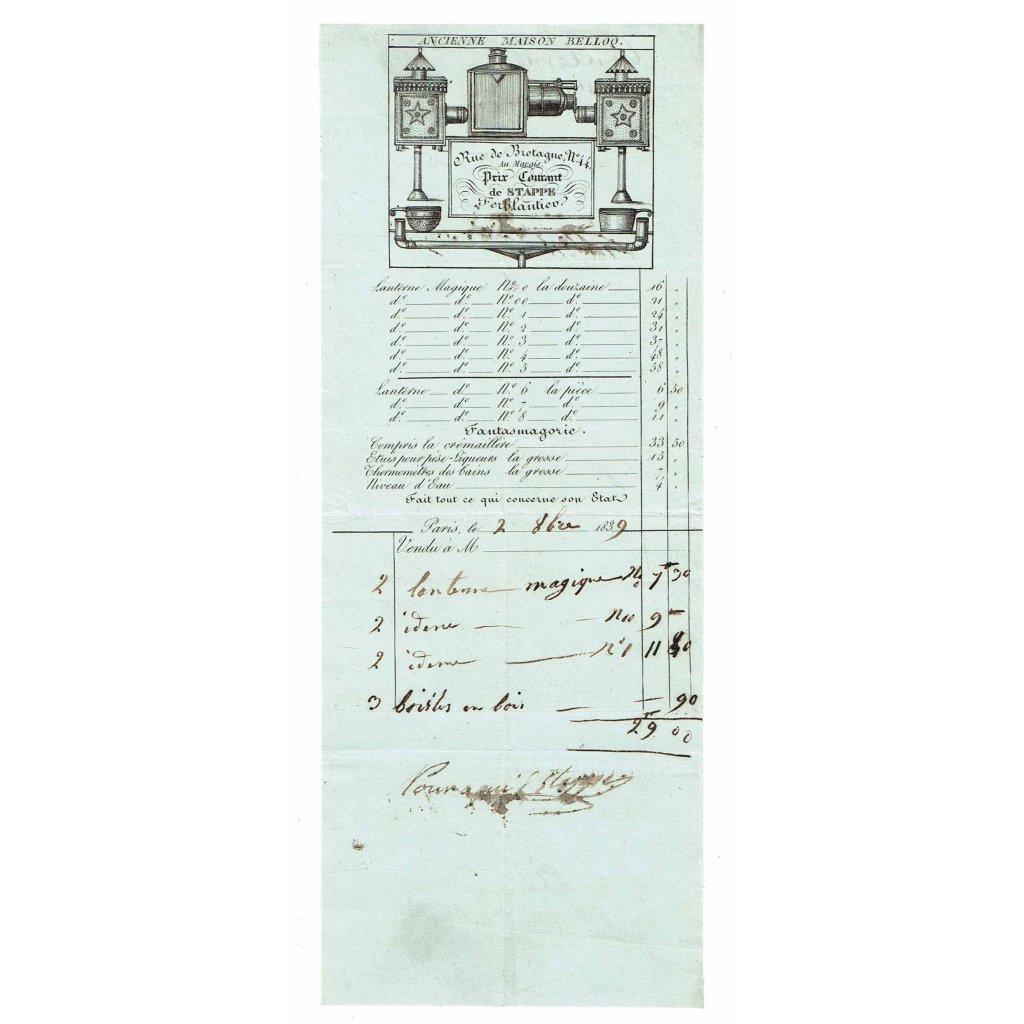 ANCIENNE MAISON BELLOQ.
Rue de Bretagne, No. 44,
Au Marais
Prix Courant
de STAPPE
Ferblantier
Lanterne Magique No. 0 la douzaine 16 "
do. do. No. 00 do. 21 "
do. do. No. 1 do. 24 "
do. do. No. 2 do. 31 "
do. do. No. 3 do. 37 "
do. do. No. 4 do. 48 "
do. do. No. 5 do. 58 "
Lanterne do. No. 6 la pièce 6 50
do. do. No. 7 do. 9 "
do. do. No. 8 do. 11 "
Fantasmagorie.
Compris la crémaillère 33 50
Etuis pour pèse-Liqueurs la grosse 15 "
Thermomètres des bains la grosse 7 "
Niveau d'Eau 4 "
Fait tout ce qui concerne son Etat
Paris, le 2 8bre 1839
Vendu à M
2 lanterne magique No 7 30
2 idem 9
2 idem No 1 11
3 en bois 90
29 00
Pour aqui Stappe